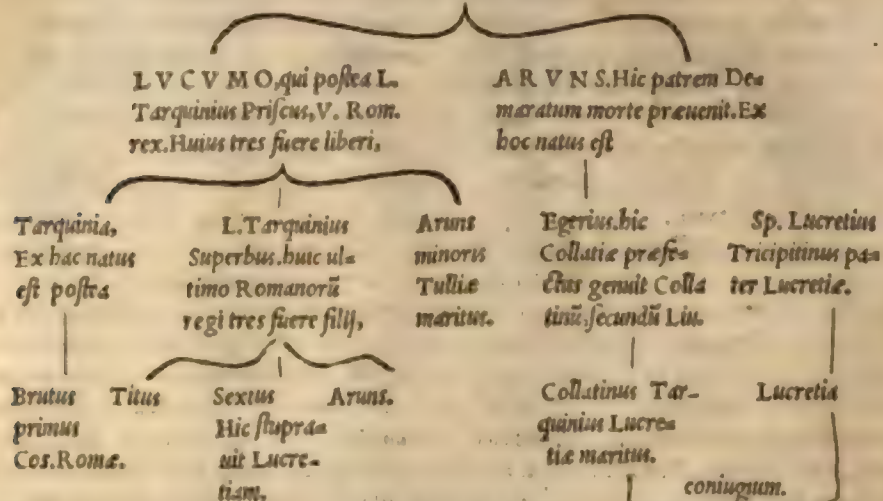 LVCVMO, qui postea L.
Tarquinius Priscus, V. Rom.
rex. Huius tres fuere liberi,
ARVNS. Hic patrem De=
maratum morte præuenit. Ex
hoc natus est
Tarquinia,
Ex hac natus
est postea
L. Tarquinius
Superbus. huic ul=
timo Romanorū
regi tres fuere filij,
Aruns
minoris
Tulliæ
maritus.
Egerius. hic
Collatiæ præfe=
ctus genuit Colla
tinū, secundū Liu.
Sp. Lucretius
Tricipitinus pa=
ter Lucretiæ.
Brutus
primus
Cos. Romæ.
Titus
Sextus
Hic stupra=
uit Lucre=
tiam.
Aruns.
Collatinus Tar=
quinius Lucre=
tiæ maritus.
Lucretia
coniugium.